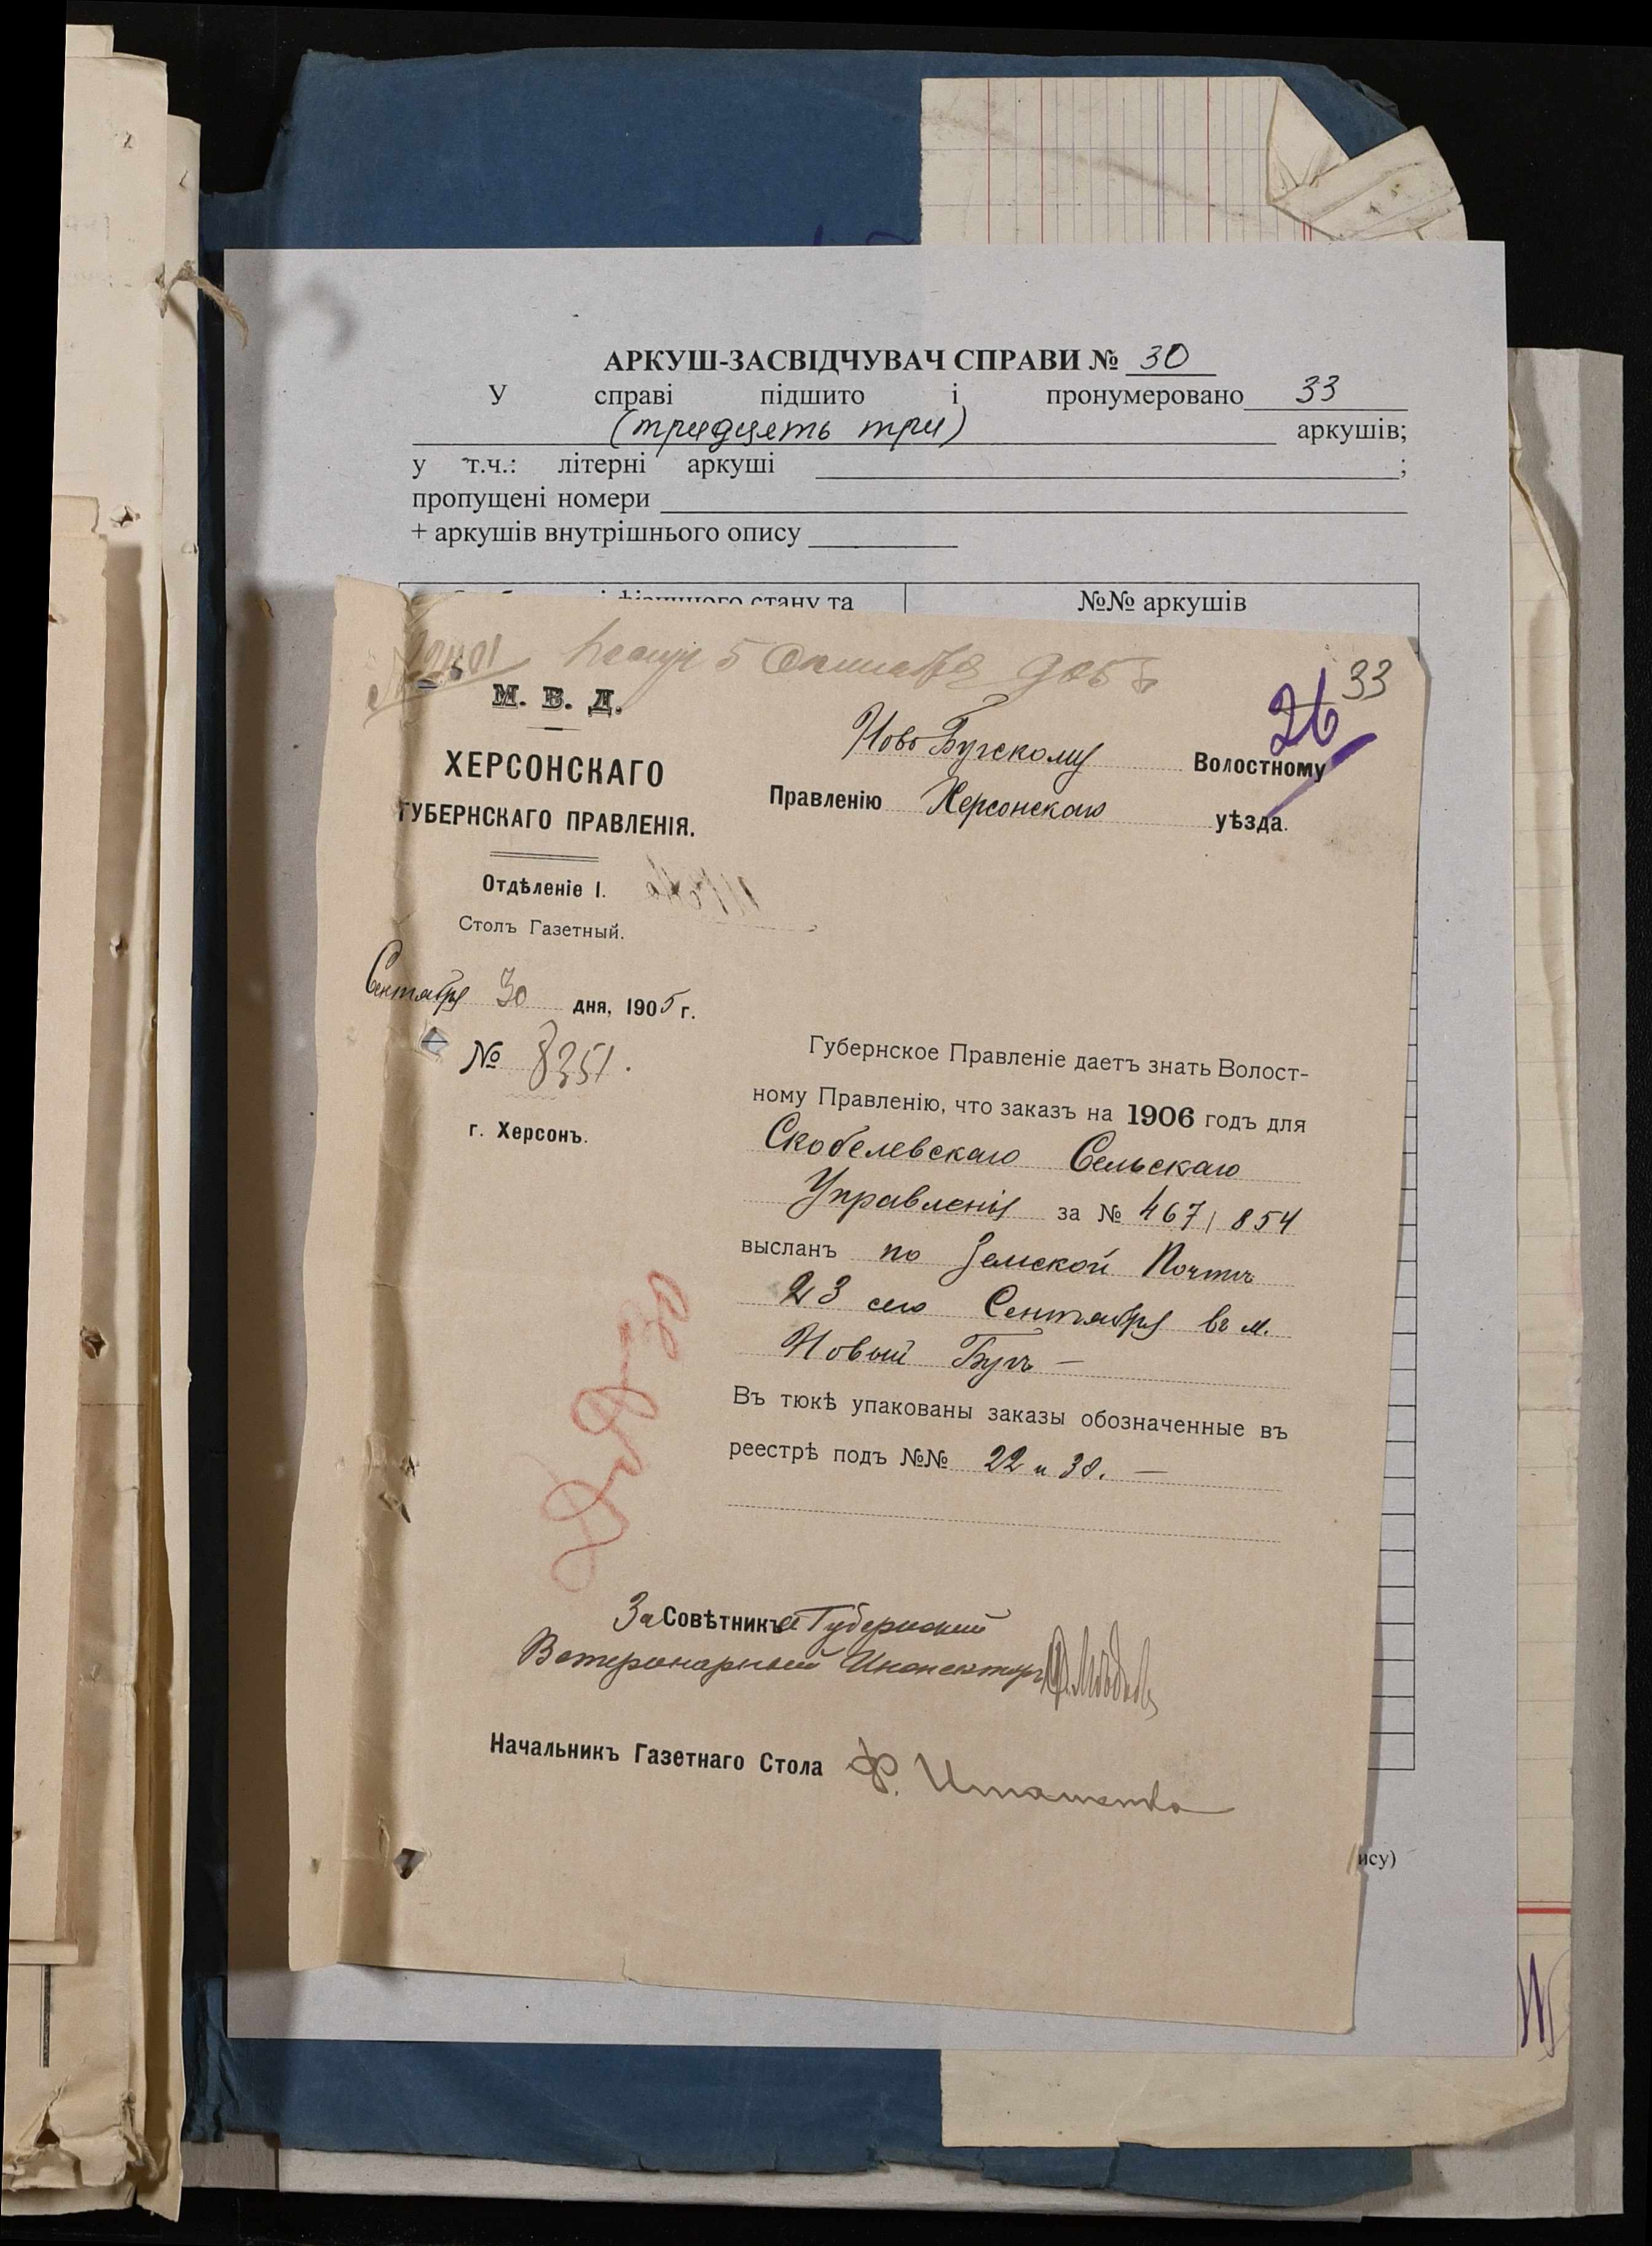 АРКУШ-ЗАСВІДЧУВАЧ СПРАВИ № 30
У справі підшито і пронумеровано 33
(тридцять три) аркушів;
у т.ч.: літерні аркуші ;
пропущені номери
+ аркушів внутрішнього опису
фізичного стану та
№№ аркушів
5 Октября 905 г
33
26
М. В. Д.
ХЕРСОНСКАГО
ГУБЕРНСКАГО ПРАВЛЕНІЯ.
Отдѣленіе I.
Столъ Газетный.
Сентября 30 дня, 1905 г.
№ 8351.
г. Херсонъ.
Ново Бугскому Волостному
Правленію Херсонскаго уѣзда.
Губернское Правленіе даетъ знать Волост-
ному Правленію, что заказъ на 1906 годъ для
Скобелевскаго Сельскаго
Управленія за № 467/854
высланъ по Земской Почтѣ
23 сего Сентября въ м.
Новый Бугъ —
Въ тюкѣ упакованы заказы обозначенные въ
реестрѣ подъ №№ 22 и 38. —
За Совѣтника Губернский
Ветеринарный Инспекторъ
Начальникъ Газетнаго Стола Ф.
ису)